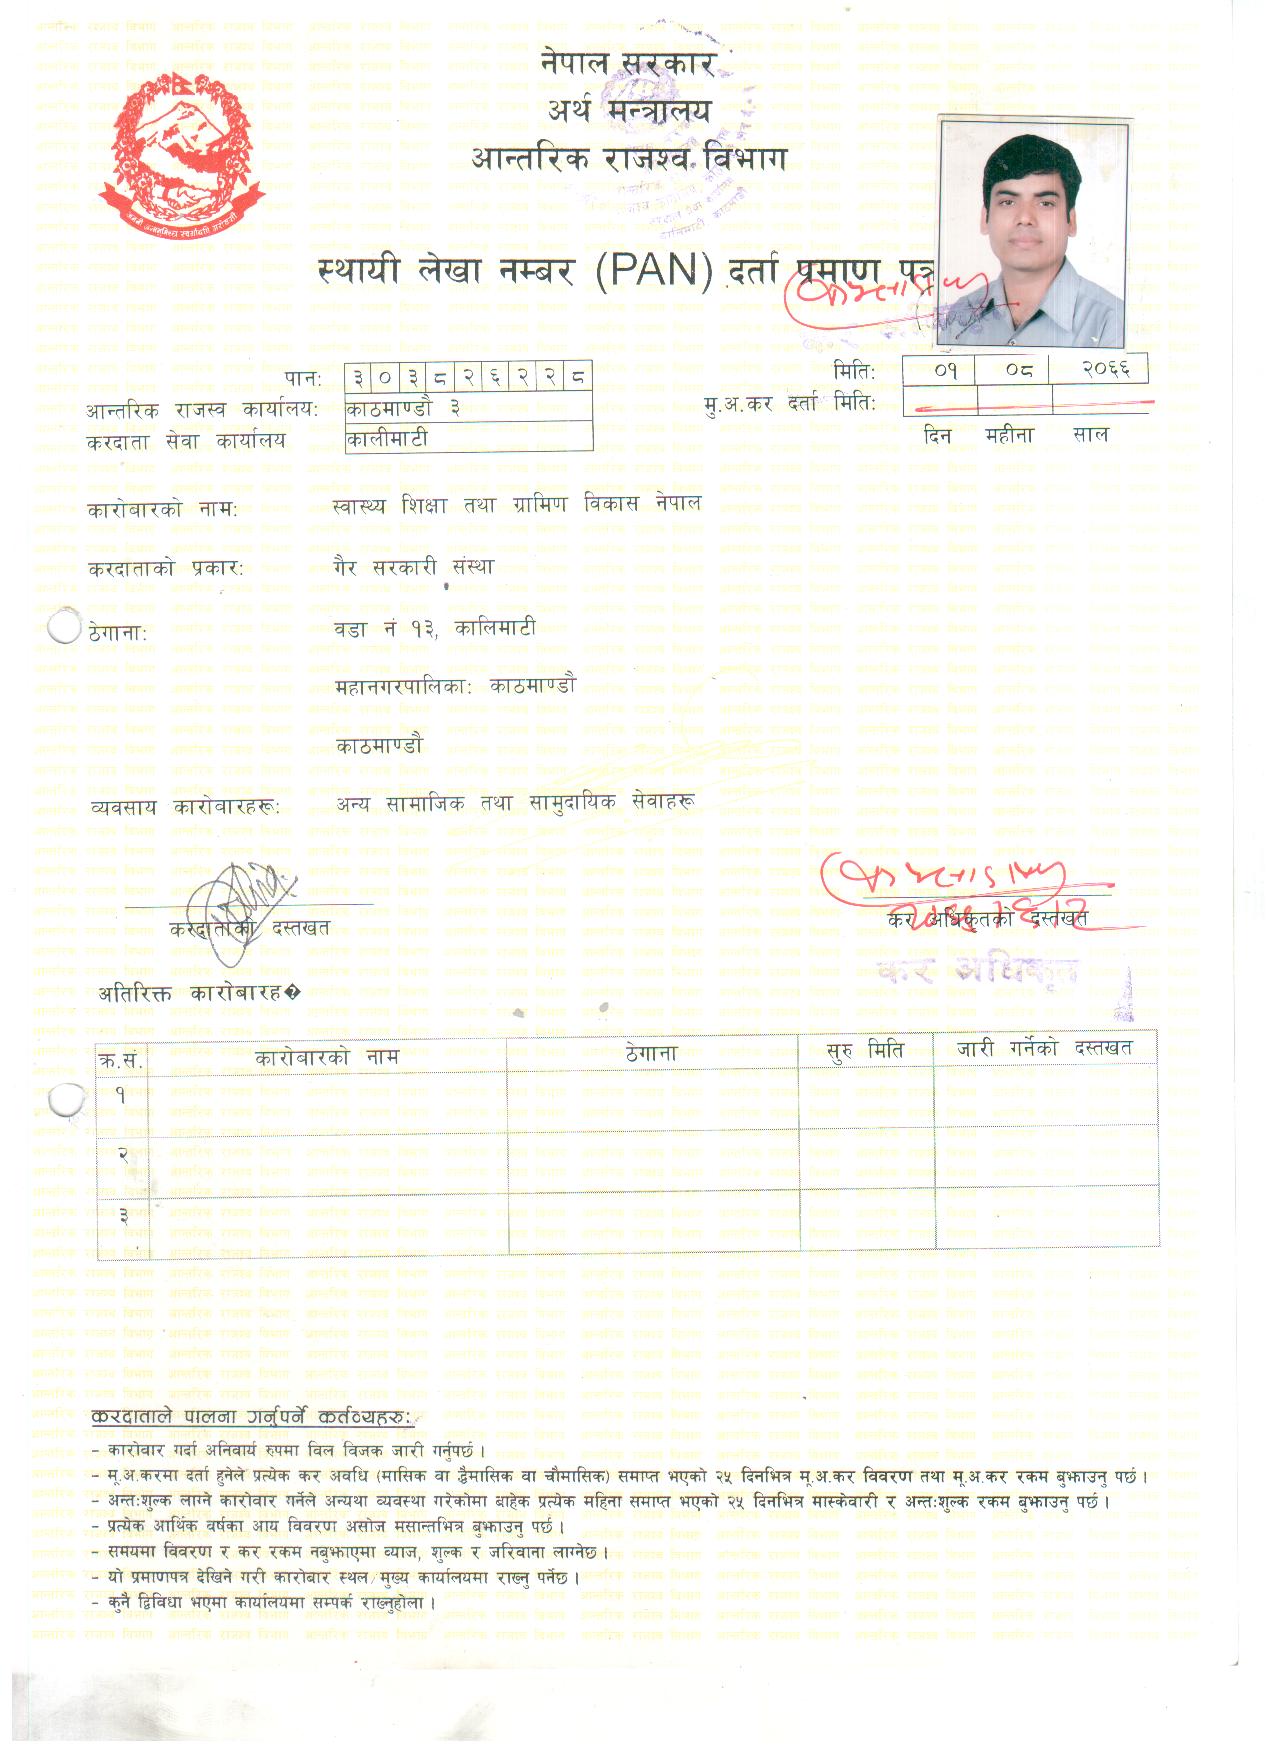 नेपाल सरकार
अर्थ मन्त्रालय
आन्तरिक राजश्व विभाग
स्थायी लेखा नम्बर (PAN) दर्ता प्रमाण पत्र
पान: ३ ० ३ ८ २ ६ २ २ ८
मिति: ०१ ०८ २०६६
आन्तरिक राजस्व कार्यालय: काठमाण्डौ ३
मु.अ.कर दर्ता मिति:
करदाता सेवा कार्यालय कालीमाटी
दिन महीना साल
कारोबारको नाम: स्वास्थ्य शिक्षा तथा ग्रामिण विकास नेपाल
करदाताको प्रकार: गैर सरकारी संस्था
ठेगाना: वडा नं १३, कालिमाटी
महानगरपालिका: काठमाण्डौ
काठमाण्डौ
व्यवसाय कारोबारहरू: अन्य सामाजिक तथा सामुदायिक सेवाहरू
करदाताको दस्तखत
कर अधिकृतको दस्तखत
कर अधिकृत
अतिरिक्त कारोबारह�
क्र.सं. कारोबारको नाम ठेगाना सुरु मिति जारी गर्नेको दस्तखत
१
२
३
करदाताले पालना गर्नुपर्ने कर्तव्यहरु:
– कारोवार गर्दा अनिवार्य रुपमा विल विजक जारी गर्नुपर्छ ।
– मू.अ.करमा दर्ता हुनेले प्रत्येक कर अवधि (मासिक वा द्वैमासिक वा चौमासिक) समाप्त भएको २५ दिनभित्र मू.अ.कर विवरण तथा मू.अ.कर रकम बुझाउनु पर्छ ।
– अन्त:शुल्क लाग्ने कारोवार गर्नेले अन्यथा व्यवस्था गरेकोमा बाहेक प्रत्येक महिना समाप्त भएको २५ दिनभित्र मास्केवारी र अन्त:शुल्क रकम बुझाउनु पर्छ ।
– प्रत्येक आर्थिक वर्षका आय विवरण असोज मसान्तभित्र बुझाउनु पर्छ ।
– समयमा विवरण र कर रकम नबुझाएमा व्याज, शुल्क र जरिवाना लाग्नेछ ।
– यो प्रमाणपत्र देखिने गरी कारोबार स्थल/मुख्य कार्यालयमा राख्नु पर्नेछ ।
– कुनै द्विविधा भएमा कार्यालयमा सम्पर्क राख्नुहोला ।